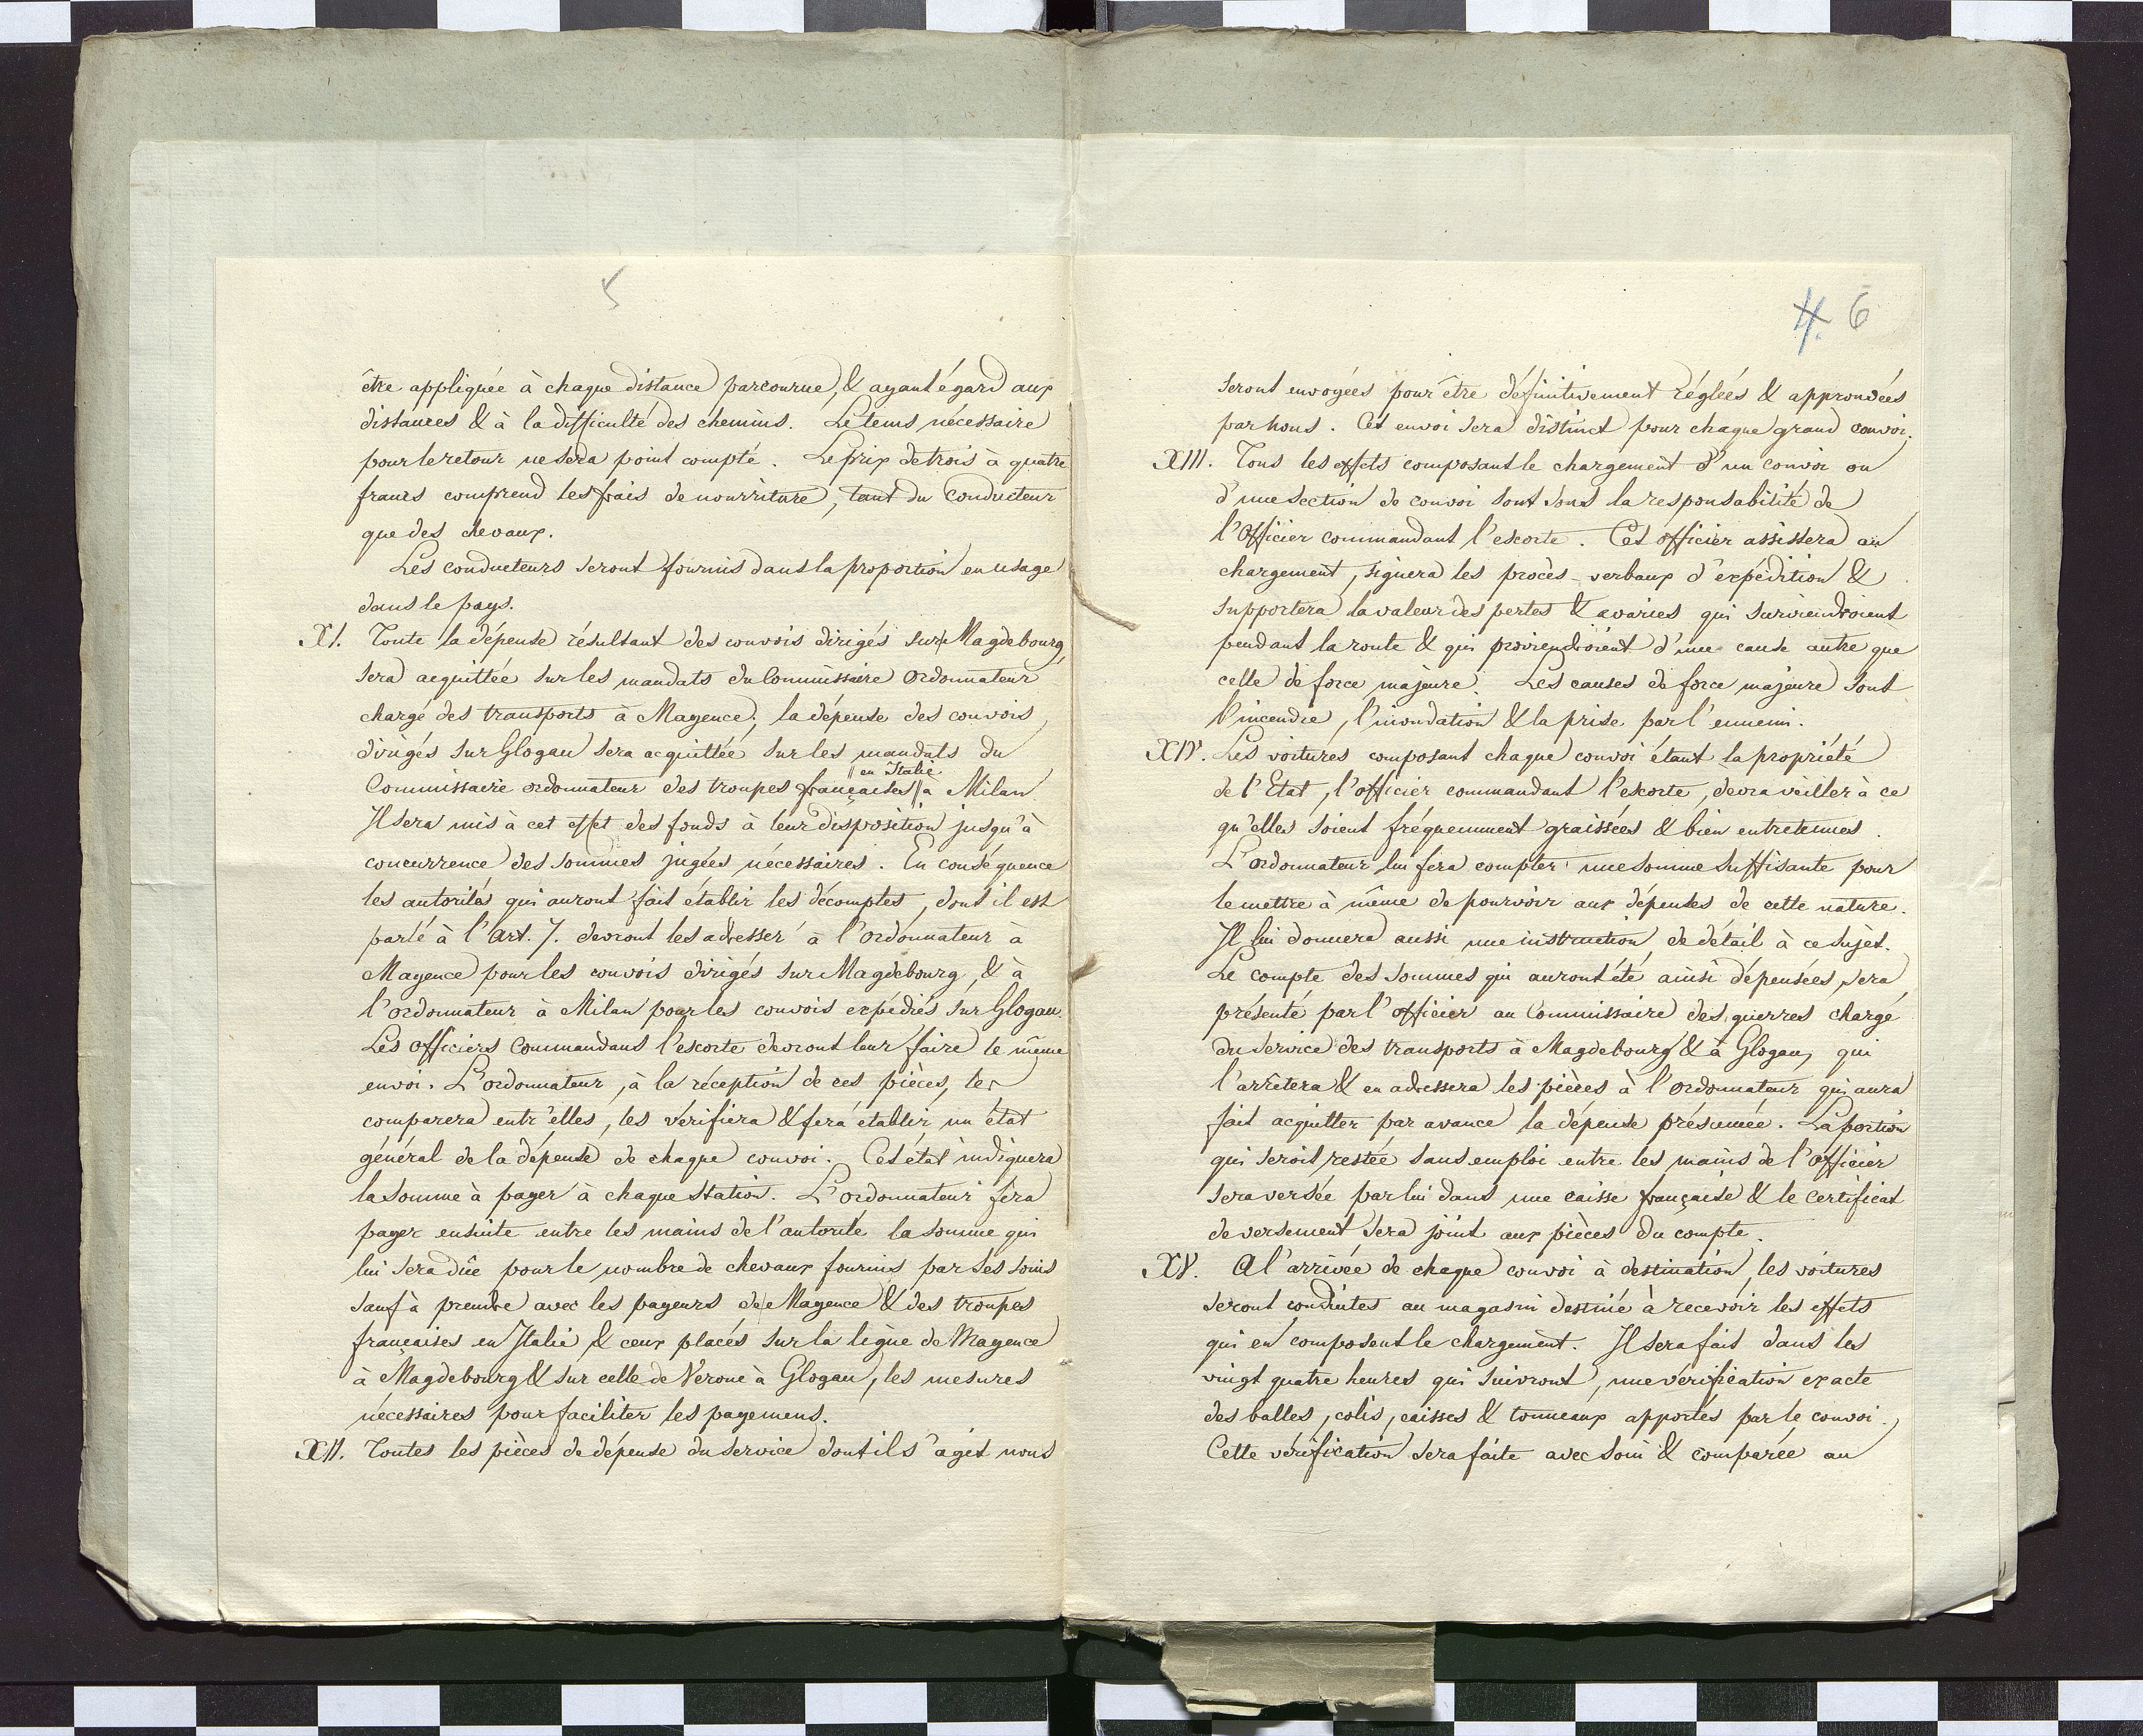 5
être appliquée à chaque distance parcourue, & ayant égard aux
distances & à la difficulté des chemins. Le tems nécessaire
pour le retour ne sera point compté. Le prix de trois à quatre
francs comprend les frais de nourriture, tant du Conducteur
que des chevaux.
Les conducteurs seront fournis dans la proportion en usage
dans le pays.
XI. Toute la dépense résultant des convois dirigés sur Magdebourg,
sera acquittée sur les mandats du Commissaire Ordonnateur
chargé des transports à Mayence; la dépense des convois
dirigés sur Glogau sera acquittée sur les mandats du
en Italie
Commissaire ordonnateur des troupes françaises à Milan
Il sera mis à cet effet des fonds à leur disposition jusqu'à
concurrence des sommes jugées nécessaires. En conséquence
les autorités qui auront fait établir les décomptes, dont il est
parlé à l'Art. 7. devront les adresser à l'ordonnateur à
Mayence pour les convois dirigés sur Magdebourg, & à
l'ordonnateur à Milan pour les convois expédiés sur Glogau.
Les officiers Commandans l'escorte devront leur faire le même
envoi. L'ordonnateur, à la réception de ces pièces, les
comparera entr'elles, les vérifiera & fera établir un état
général de la dépense de chaque convoi. Cet état indiquera
la somme à payer à chaque station. L'ordonnateur fera
payer ensuite entre les mains de l'autorité la somme qui
lui sera dûe pour le nombre de chevaux fournis par ses soins
sauf à prendre avec les payeurs de Mayence & des troupes
françaises en Italie & ceux placés sur la ligne de Mayence
à Magdebourg & sur celle de Verone à Glogau, les mesures
nécessaires pour faciliter les payemens.
XII. Toutes les pièces de dépense du service dont il s'agit nous
4. 6
seront envoyées pour être définitivement réglées & approuvées
par nous. Cet envoi sera distinct pour chaque grand convoi.
XIII. Tous les effets composant le chargement d'un convoi ou
d'une section de convoi sont sous la responsabilité de
l'Officier commandant l'escorte. Cet officier assistera au
chargement, signera les procès-verbaux d'expédition &
supportera la valeur des pertes & avaries qui surviendroient
pendant la route & qui proviendroient d'une cause autre que
celle de force majeure. Les causes de force majeure sont
l'incendie, l'inondation & la prise par l'ennemi.
XIV. Les voitures composant chaque convoi étant la propriété
de l'Etat, l'officier commandant l'escorte, devra veiller à ce
qu'elles soient fréquemment graissées & bien entretenues.
L'ordonnateur lui fera compter une somme suffisante pour
le mettre à même de pourvoir aux dépenses de cette nature.
Il lui donnera aussi une instruction de détail à ce sujet.
Le compte des sommes qui auront été ainsi dépensées, sera
présenté par l'officier au Commissaire des guerres chargé
du service des transports à Magdebourg & à Glogau, qui
l'arrêtera & en adressera les pièces à l'ordonnateur qui aura
fait acquitter par avance la dépense présumée. La portion
qui seroit restée sans emploi entre les mains de l'officier
sera versée par lui dans une caisse française & le certificat
de versement sera joint aux pièces du compte.
XV. A l'arrivée de chaque convoi à destination, les voitures
seront conduites au magasin destiné à recevoir les effets
qui en composent le chargement. Il sera fait dans les
vingt quatre heures qui suivront, une vérification exacte
des balles, colis, caisses & tonneaux apportés par le convoi.
Cette vérification sera faite avec soin & comparée au